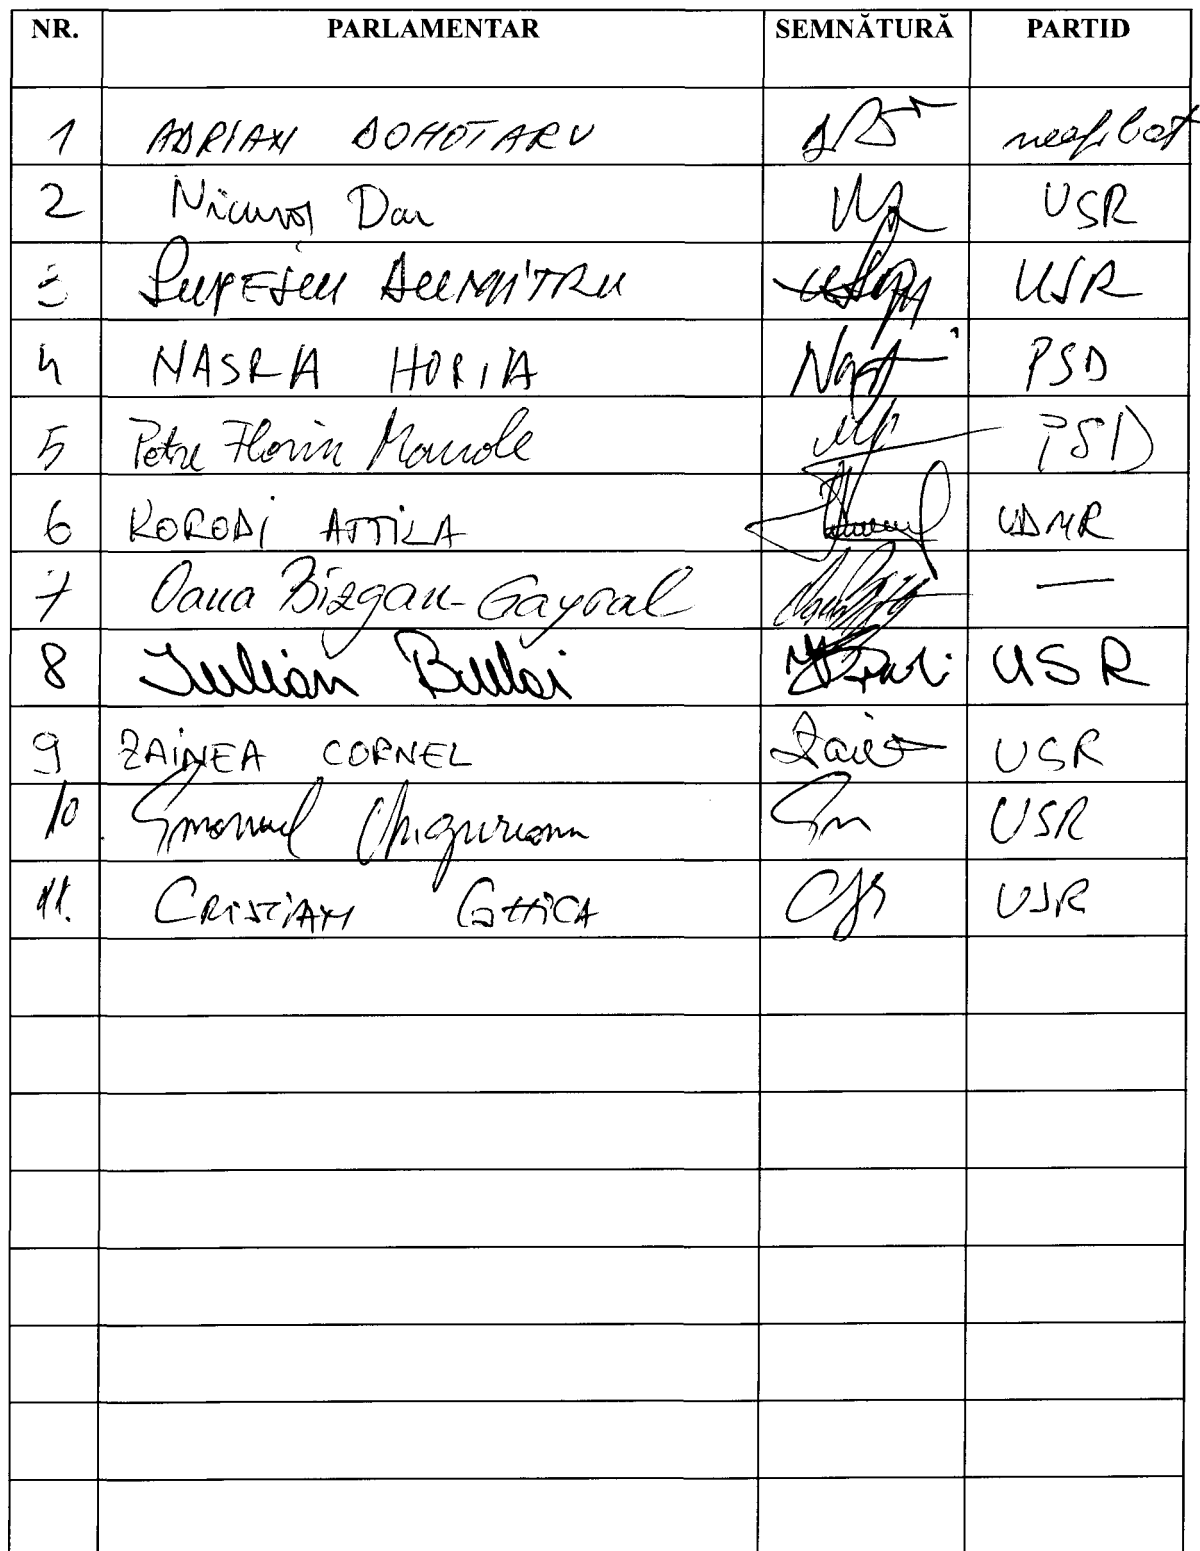 NR. PARLAMENTAR SEMNĂTURĂ PARTID
1 ADRIAN DOHOTARU neafiliat
2 Nicușor Dan USR
3 Lupescu Dumitru USR
4 NASRA HORIA PSD
5 Petre Florin Manole PSD
6 KORODI ATTILA UDMR
7 Oana Bizgan-Gayral —
8 Iulian Bulai USR
9 ZAINEA CORNEL USR
10 Emanuel Ungureanu USR
11. CRISTIAN GHICA USR